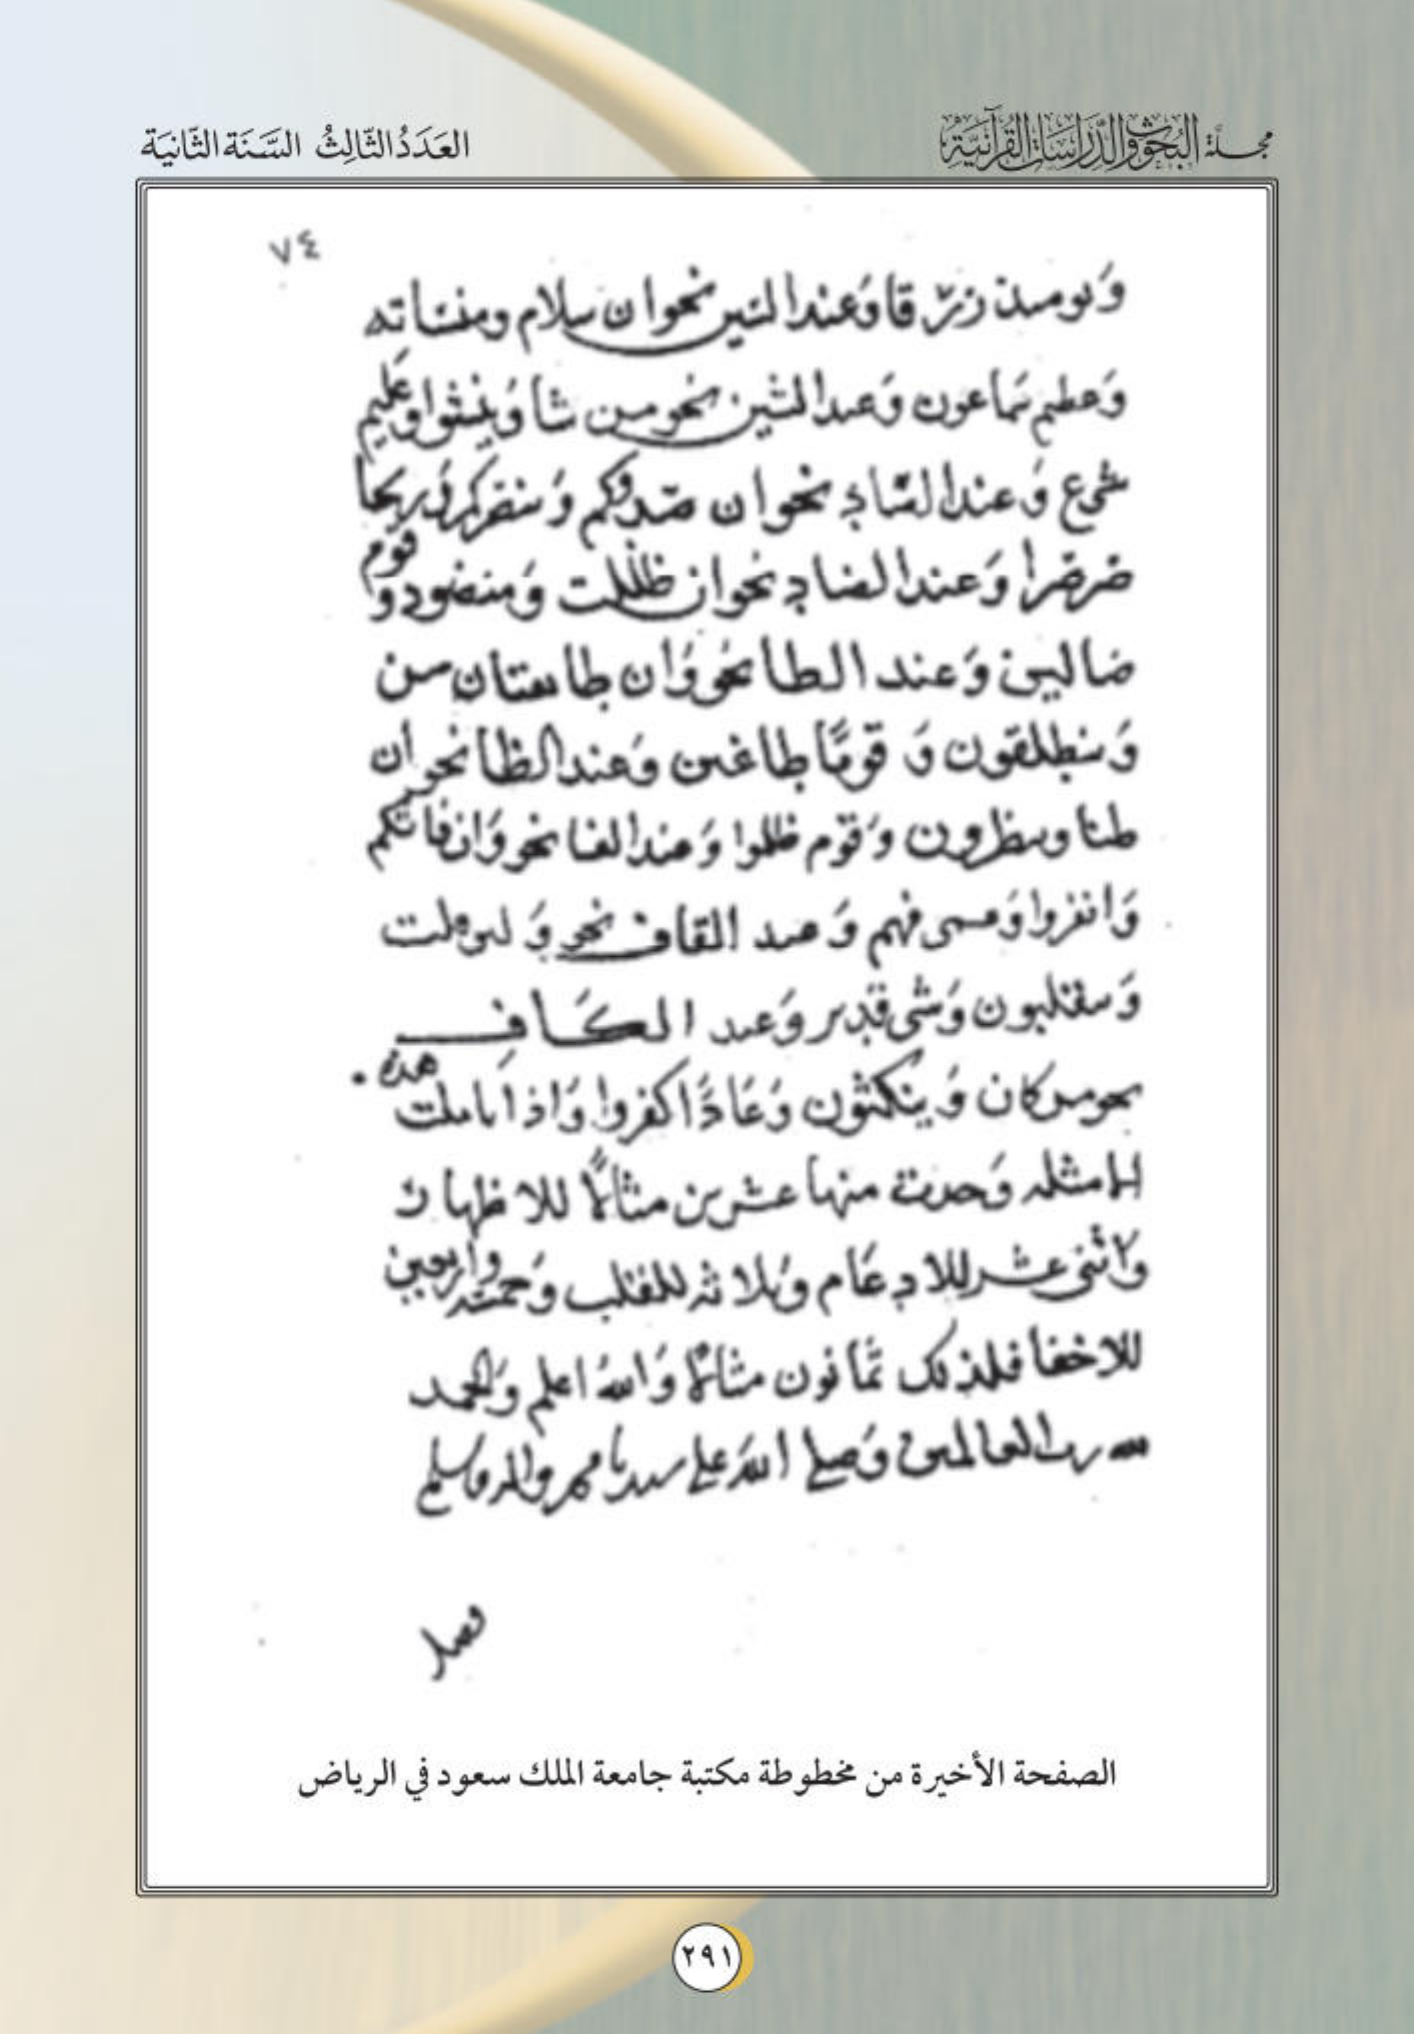 مجلة البحوث والدراسات القرآنية
العَدَدُ الثَّالِثُ السَّنَة الثَّانِيَة
٧٤
ويومىذ زرقا وعند السين نحو ان سلام ومنساته
وعظيم سماعون وعند الشين نحو من شا وينشوا وعليم
شرع وعند الصاد نحو ان صدوكم وينصركم وريحا
صرصرا وعند الضاد نحو ان ظللت ومنضود وقوم
ضالين وعند الطا نحو وان طايفتان من
وينطلقون وقوما طاغين وعند الظا نحو ان
ظنا وينظرون وقوم ظلموا وعند الفا نحو وان فاتكم
وانفروا وعمى فهم وعند القاف نحو ولين قلت
وينقلبون وشي قدير وعند الكاف
نحو من كان وينكثون وعادا كفروا واذا تاملت هذه
الامثله وجدت منها عشرين مثالا للاظهار
واثني عشر للادغام وثلاثه للقلب وخمسة واربعين
للاخفا فلذلك ثمانون مثالا والله اعلم والحمد
لله رب العالمين وصلى الله على سيدنا محمد واله وسلم
فصل
الصفحة الأخيرة من مخطوطة مكتبة جامعة الملك سعود في الرياض
٢٩١